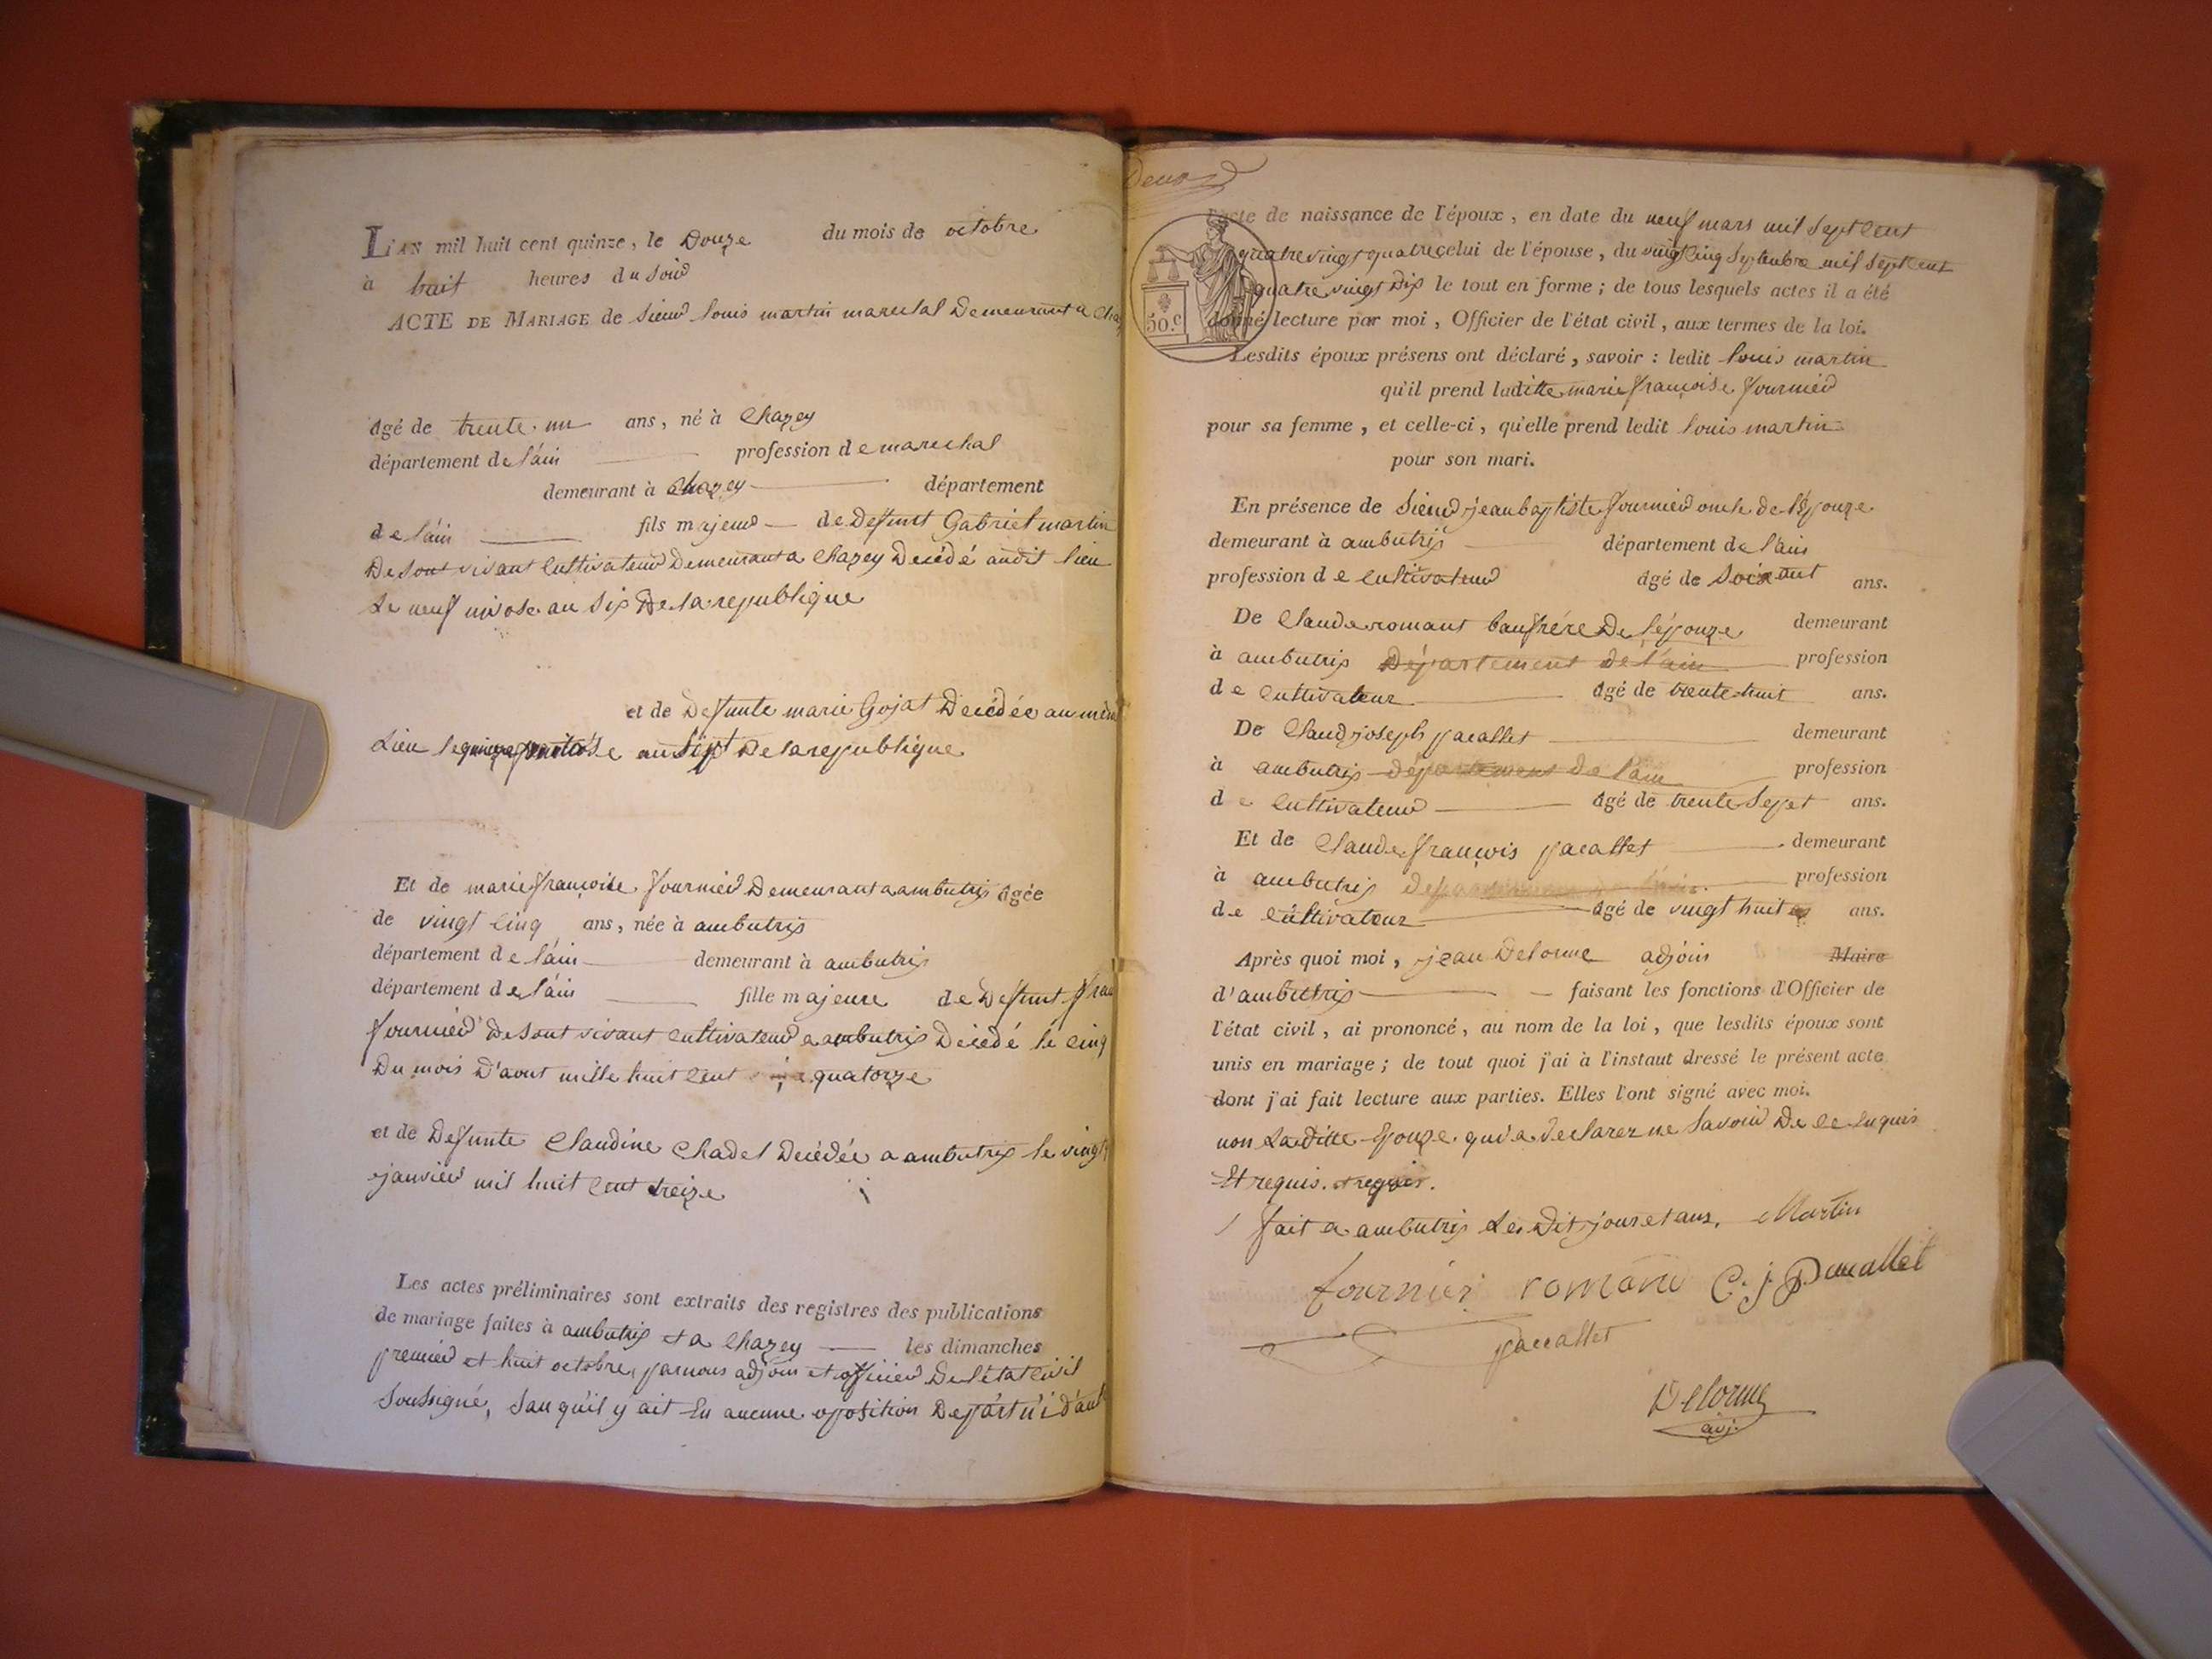 L'AN mil huit cent quinze, le Douze du mois de octobre
à huit heures du soir
ACTE DE MARIAGE de sieur louis martin marechal Demeurant a Chaz
âgé de trente un ans, né à Chazey
département de l'ain profession de marechal
demeurant à Chazey département
de l'ain fils majeur de Defunt Gabriel martin
De sont vivant Cultivateur Demeurant a Chazey Decédé audit lieu
Le neuf nivose an six De la republique
et de Defunte marie Gojat Decédée au même
Lieu le quinze an sept De la republique
Et de marie françoise fournier Demeurant a ambutrix âgée
de vingt cinq ans, née à ambutrix
département de l'ain demeurant à ambutrix
département de l'ain fille majeure de Defunt fran
fournier De sont vivant cultivateur a ambutrix Decedé le cinq
Du mois D'aout mille huit cent quatorze
et de Defunte Claudine Chadel Decédée a ambutrix le vingt
janvier mil huit cent treize
Les actes préliminaires sont extraits des registres des publications
de mariage faites à ambutrix et a Chazey les dimanches
premier et huit octobre, par nous adjoin et officier De l'état civil
soussigné, san qu'il y ait Eu aucune oposition De part n'i d'aut
l'acte de naissance de l'époux, en date du neuf mars mil sept cent
quatre vingt quatre celui de l'épouse, du vingt cinq septembre mil sept cent
quatre vingt Dix le tout en forme; de tous lesquels actes il a été
donné lecture par moi, Officier de l'état civil, aux termes de la loi.
50.c
Lesdits époux présens ont déclaré, savoir: ledit louis martin
qu'il prend laditte marie françoise fournier
pour sa femme, et celle-ci, qu'elle prend ledit louis martin
pour son mari.
En présence de sieur jean baptiste fournier oncle de l'épouze
demeurant à ambutrix département de l'ain
profession de cultivateur âgé de soixant ans.
De Claude romant baufrére De l'épouze demeurant
à ambutrix Département de l'ain profession
de cultivateur âgé de trente-huit ans.
De Claud joseph pacallet demeurant
à ambutrix département de l'ain profession
de cultivateur âgé de trente sept ans.
Et de Claude françois pacallet demeurant
à ambutrix profession
de cultivateur âgé de vingt huit ans.
Après quoi moi, jean Delorme adjoin Maire
d'ambutrix faisant les fonctions d'Officier de
l'état civil, ai prononcé, au nom de la loi, que lesdits époux sont
unis en mariage; de tout quoi j'ai à l'instant dressé le présent acte
dont j'ai fait lecture aux parties. Elles l'ont signé avec moi.
non Laditte Epouze qui a declarez ne savoir De ce enquis
Et requis.
fait a ambutrix Les Dit jour et ans. Martin
fournier C. j. Pacallet
paccallet
Delorme
adj.